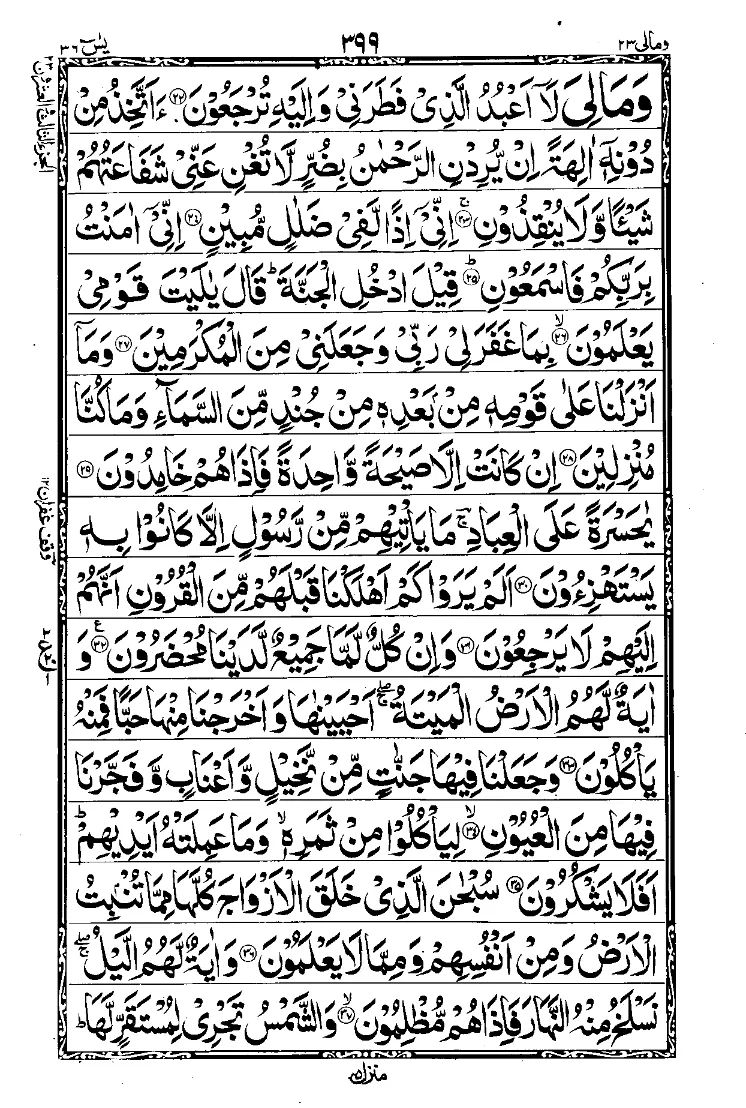 يٰسٓ ٣٦
٣٩٩
ومالى ٢٣
وَمَا لِيَ لَآ اَعْبُدُ الَّذِىْ فَطَرَنِىْ وَاِلَيْهِ تُرْجَعُوْنَ ﴿٢٢﴾ ءَاَتَّخِذُ مِنْ
دُوْنِهٖٓ اٰلِهَةً اِنْ يُّرِدْنِ الرَّحْمٰنُ بِضُرٍّ لَّا تُغْنِ عَنِّىْ شَفَاعَتُهُمْ
شَيْـًٔا وَّلَا يُنْقِذُوْنِ ۚ﴿٢٣﴾ اِنِّىْٓ اِذًا لَّفِىْ ضَلٰلٍ مُّبِيْنٍ ﴿٢٤﴾ اِنِّىْٓ اٰمَنْتُ
بِرَبِّكُمْ فَاسْمَعُوْنِ ؕ﴿٢٥﴾ قِيْلَ ادْخُلِ الْجَنَّةَ ؕ قَالَ يٰلَيْتَ قَوْمِىْ
يَعْلَمُوْنَ ۙ﴿٢٦﴾ بِمَا غَفَرَ لِىْ رَبِّىْ وَجَعَلَنِىْ مِنَ الْمُكْرَمِيْنَ ﴿٢٧﴾ وَمَآ
اَنْزَلْنَا عَلٰى قَوْمِهٖ مِنْۢ بَعْدِهٖ مِنْ جُنْدٍ مِّنَ السَّمَآءِ وَمَا كُنَّا
مُنْزِلِيْنَ ﴿٢٨﴾ اِنْ كَانَتْ اِلَّا صَيْحَةً وَّاحِدَةً فَاِذَا هُمْ خَامِدُوْنَ ﴿٢٩﴾
يٰحَسْرَةً عَلَى الْعِبَادِ ۚ مَا يَاْتِيْهِمْ مِّنْ رَّسُوْلٍ اِلَّا كَانُوْا بِهٖ
يَسْتَهْزِءُوْنَ ﴿٣٠﴾ اَلَمْ يَرَوْا كَمْ اَهْلَكْنَا قَبْلَهُمْ مِّنَ الْقُرُوْنِ اَنَّهُمْ
اِلَيْهِمْ لَا يَرْجِعُوْنَ ﴿٣١﴾ وَاِنْ كُلٌّ لَّمَّا جَمِيْعٌ لَّدَيْنَا مُحْضَرُوْنَ ﴿٣٢﴾ وَ
اٰيَةٌ لَّهُمُ الْاَرْضُ الْمَيْتَةُ ۖۚ اَحْيَيْنٰهَا وَاَخْرَجْنَا مِنْهَا حَبًّا فَمِنْهُ
يَاْكُلُوْنَ ﴿٣٣﴾ وَجَعَلْنَا فِيْهَا جَنّٰتٍ مِّنْ نَّخِيْلٍ وَّاَعْنَابٍ وَّفَجَّرْنَا
فِيْهَا مِنَ الْعُيُوْنِ ۙ﴿٣٤﴾ لِيَاْكُلُوْا مِنْ ثَمَرِهٖ ۙ وَمَا عَمِلَتْهُ اَيْدِيْهِمْ ؕ
اَفَلَا يَشْكُرُوْنَ ﴿٣٥﴾ سُبْحٰنَ الَّذِىْ خَلَقَ الْاَزْوَاجَ كُلَّهَا مِمَّا تُنْۢبِتُ
الْاَرْضُ وَمِنْ اَنْفُسِهِمْ وَمِمَّا لَا يَعْلَمُوْنَ ﴿٣٦﴾ وَاٰيَةٌ لَّهُمُ الَّيْلُ ۖۚ
نَسْلَخُ مِنْهُ النَّهَارَ فَاِذَا هُمْ مُّظْلِمُوْنَ ۙ﴿٣٧﴾ وَالشَّمْسُ تَجْرِىْ لِمُسْتَقَرٍّ لَّهَا ؕ
الجزء الثالث والعشرون ٢٣
وقف غفران
منزل ٥